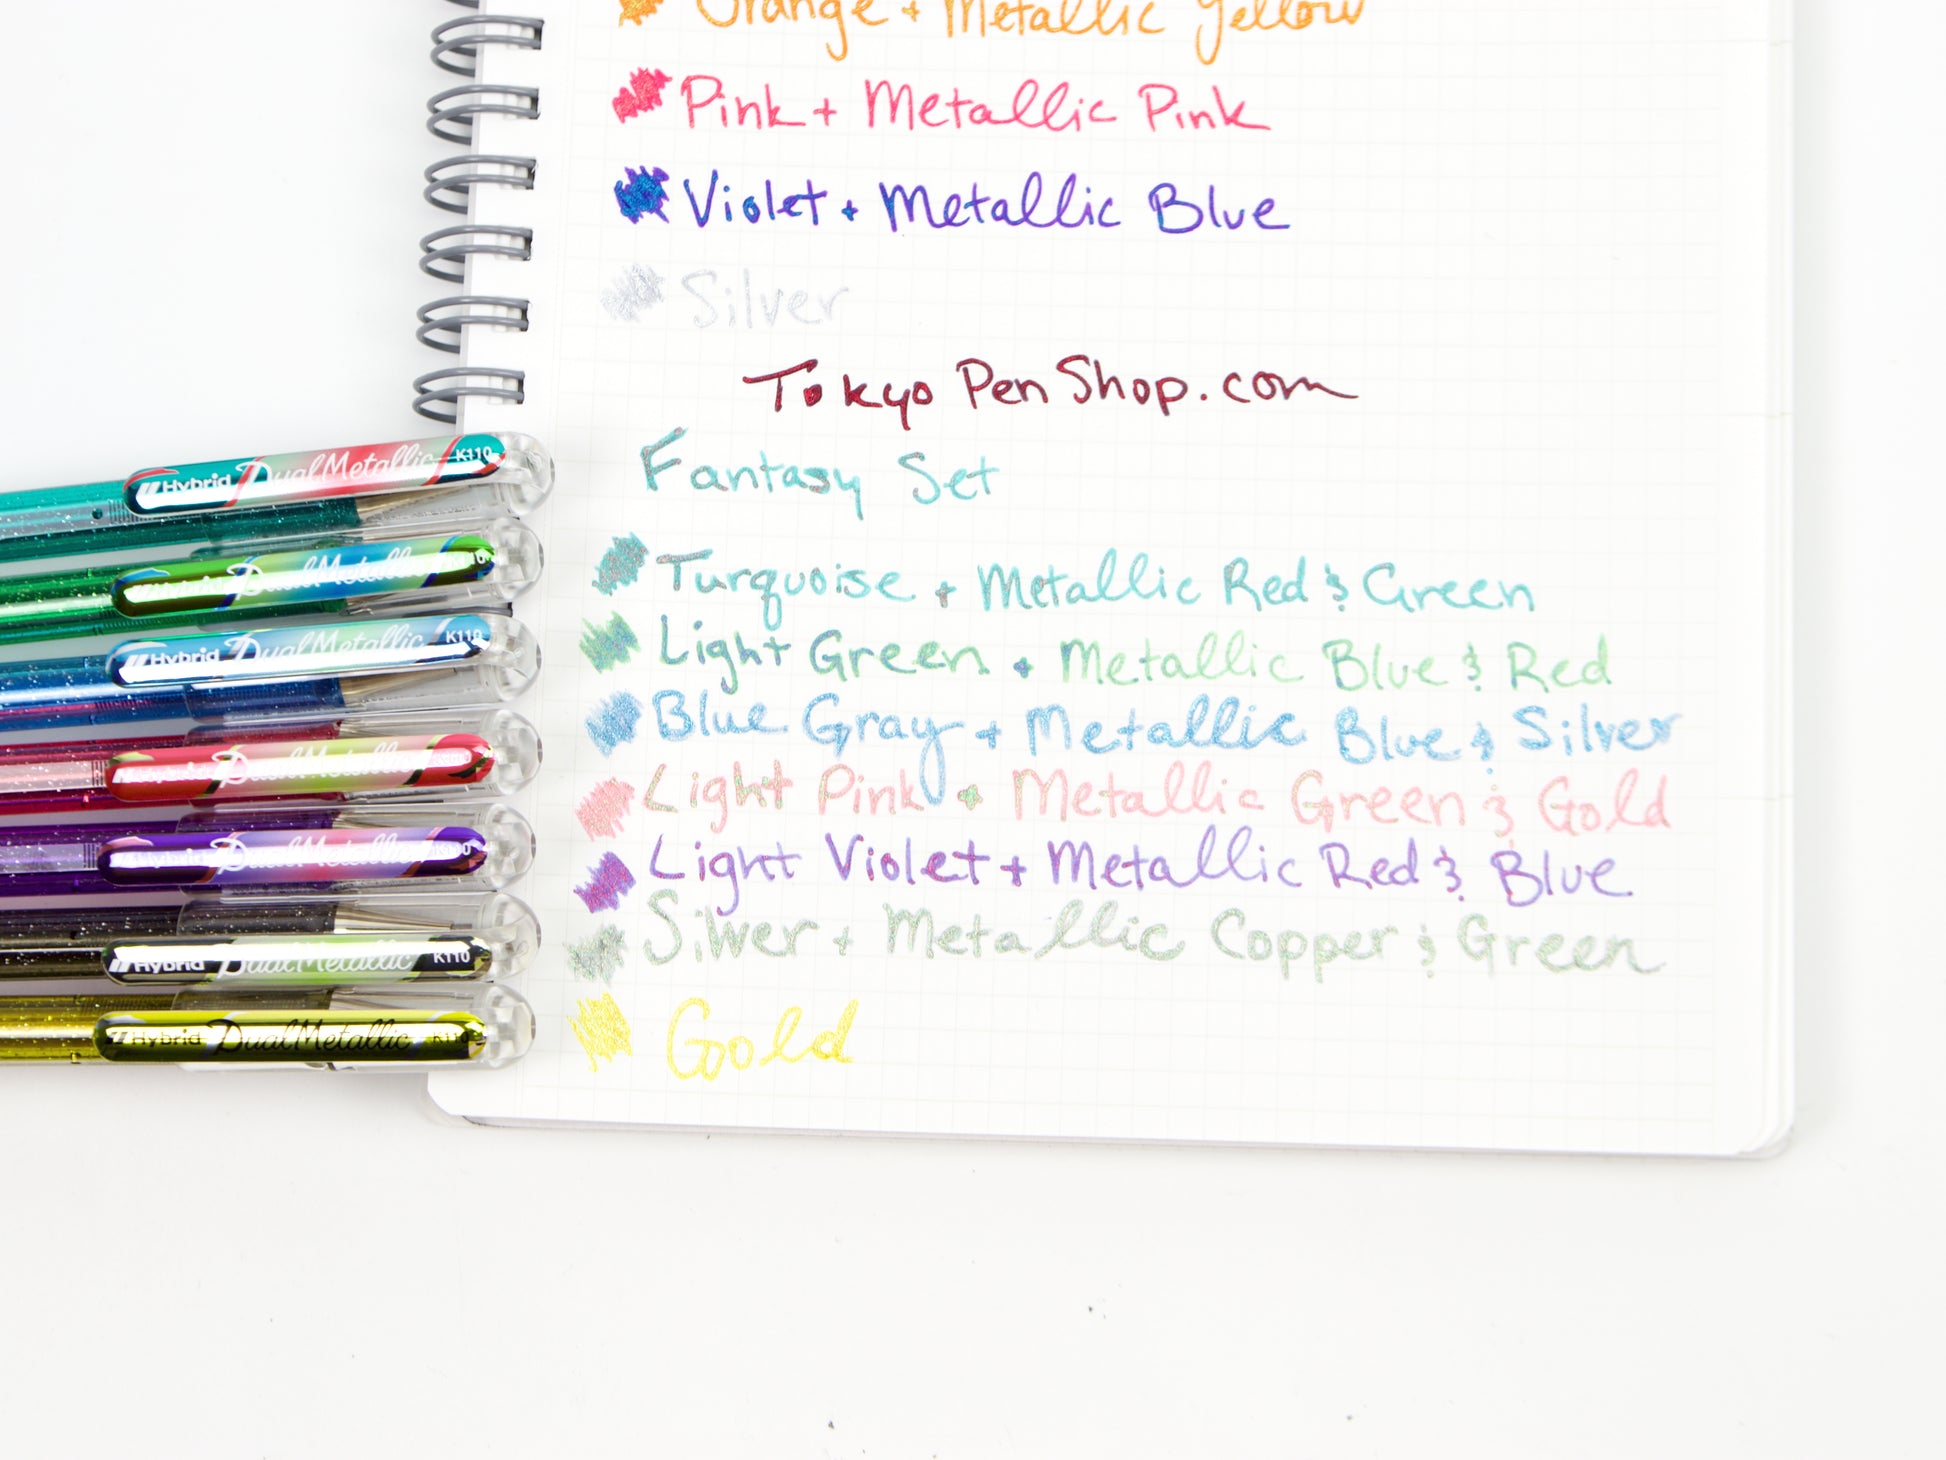 Orange + Metallic Yellow
Pink + Metallic Pink
Violet + Metallic Blue
Silver
TokyoPenShop.com
Fantasy Set
Turquoise + Metallic Red & Green
Light Green + Metallic Blue & Red
Blue Gray + Metallic Blue & Silver
Light Pink + Metallic Green & Gold
Light Violet + Metallic Red & Blue
Silver + Metallic Copper & Green
Gold
Hybrid DualMetallic K110
DualMetallic
Hybrid DualMetallic K110
Hybrid DualMetallic
Hybrid DualMetallic
Hybrid DualMetallic K110
Hybrid DualMetallic K110